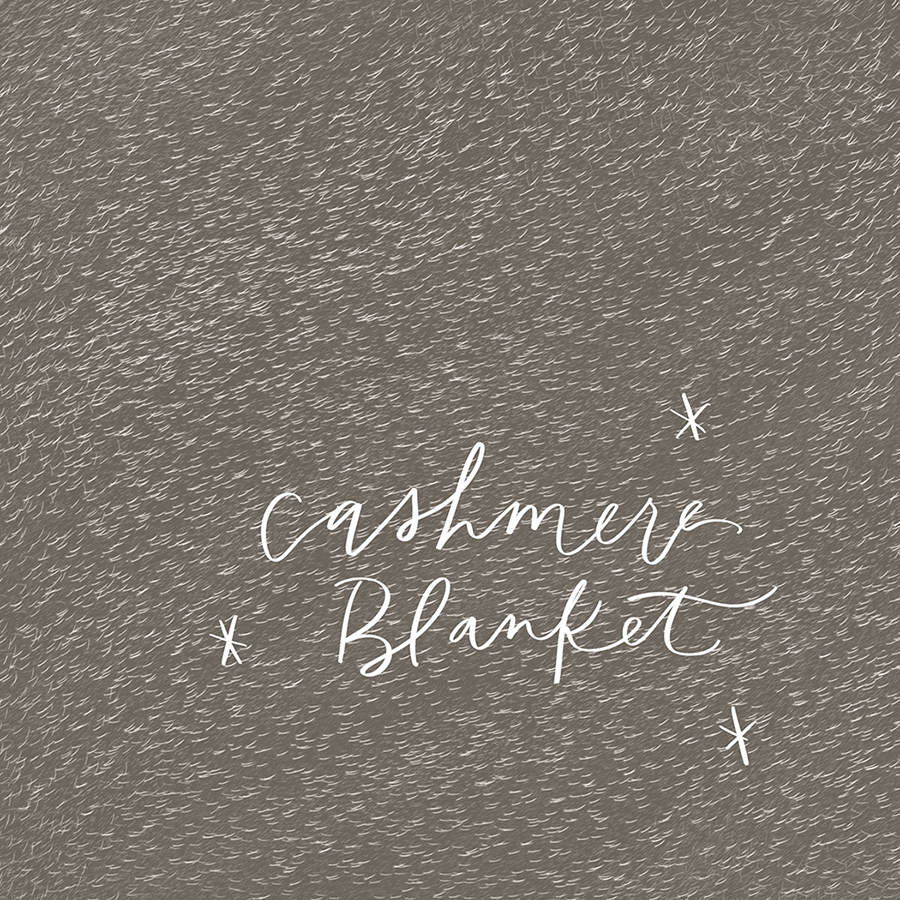 cashmere
Blanket